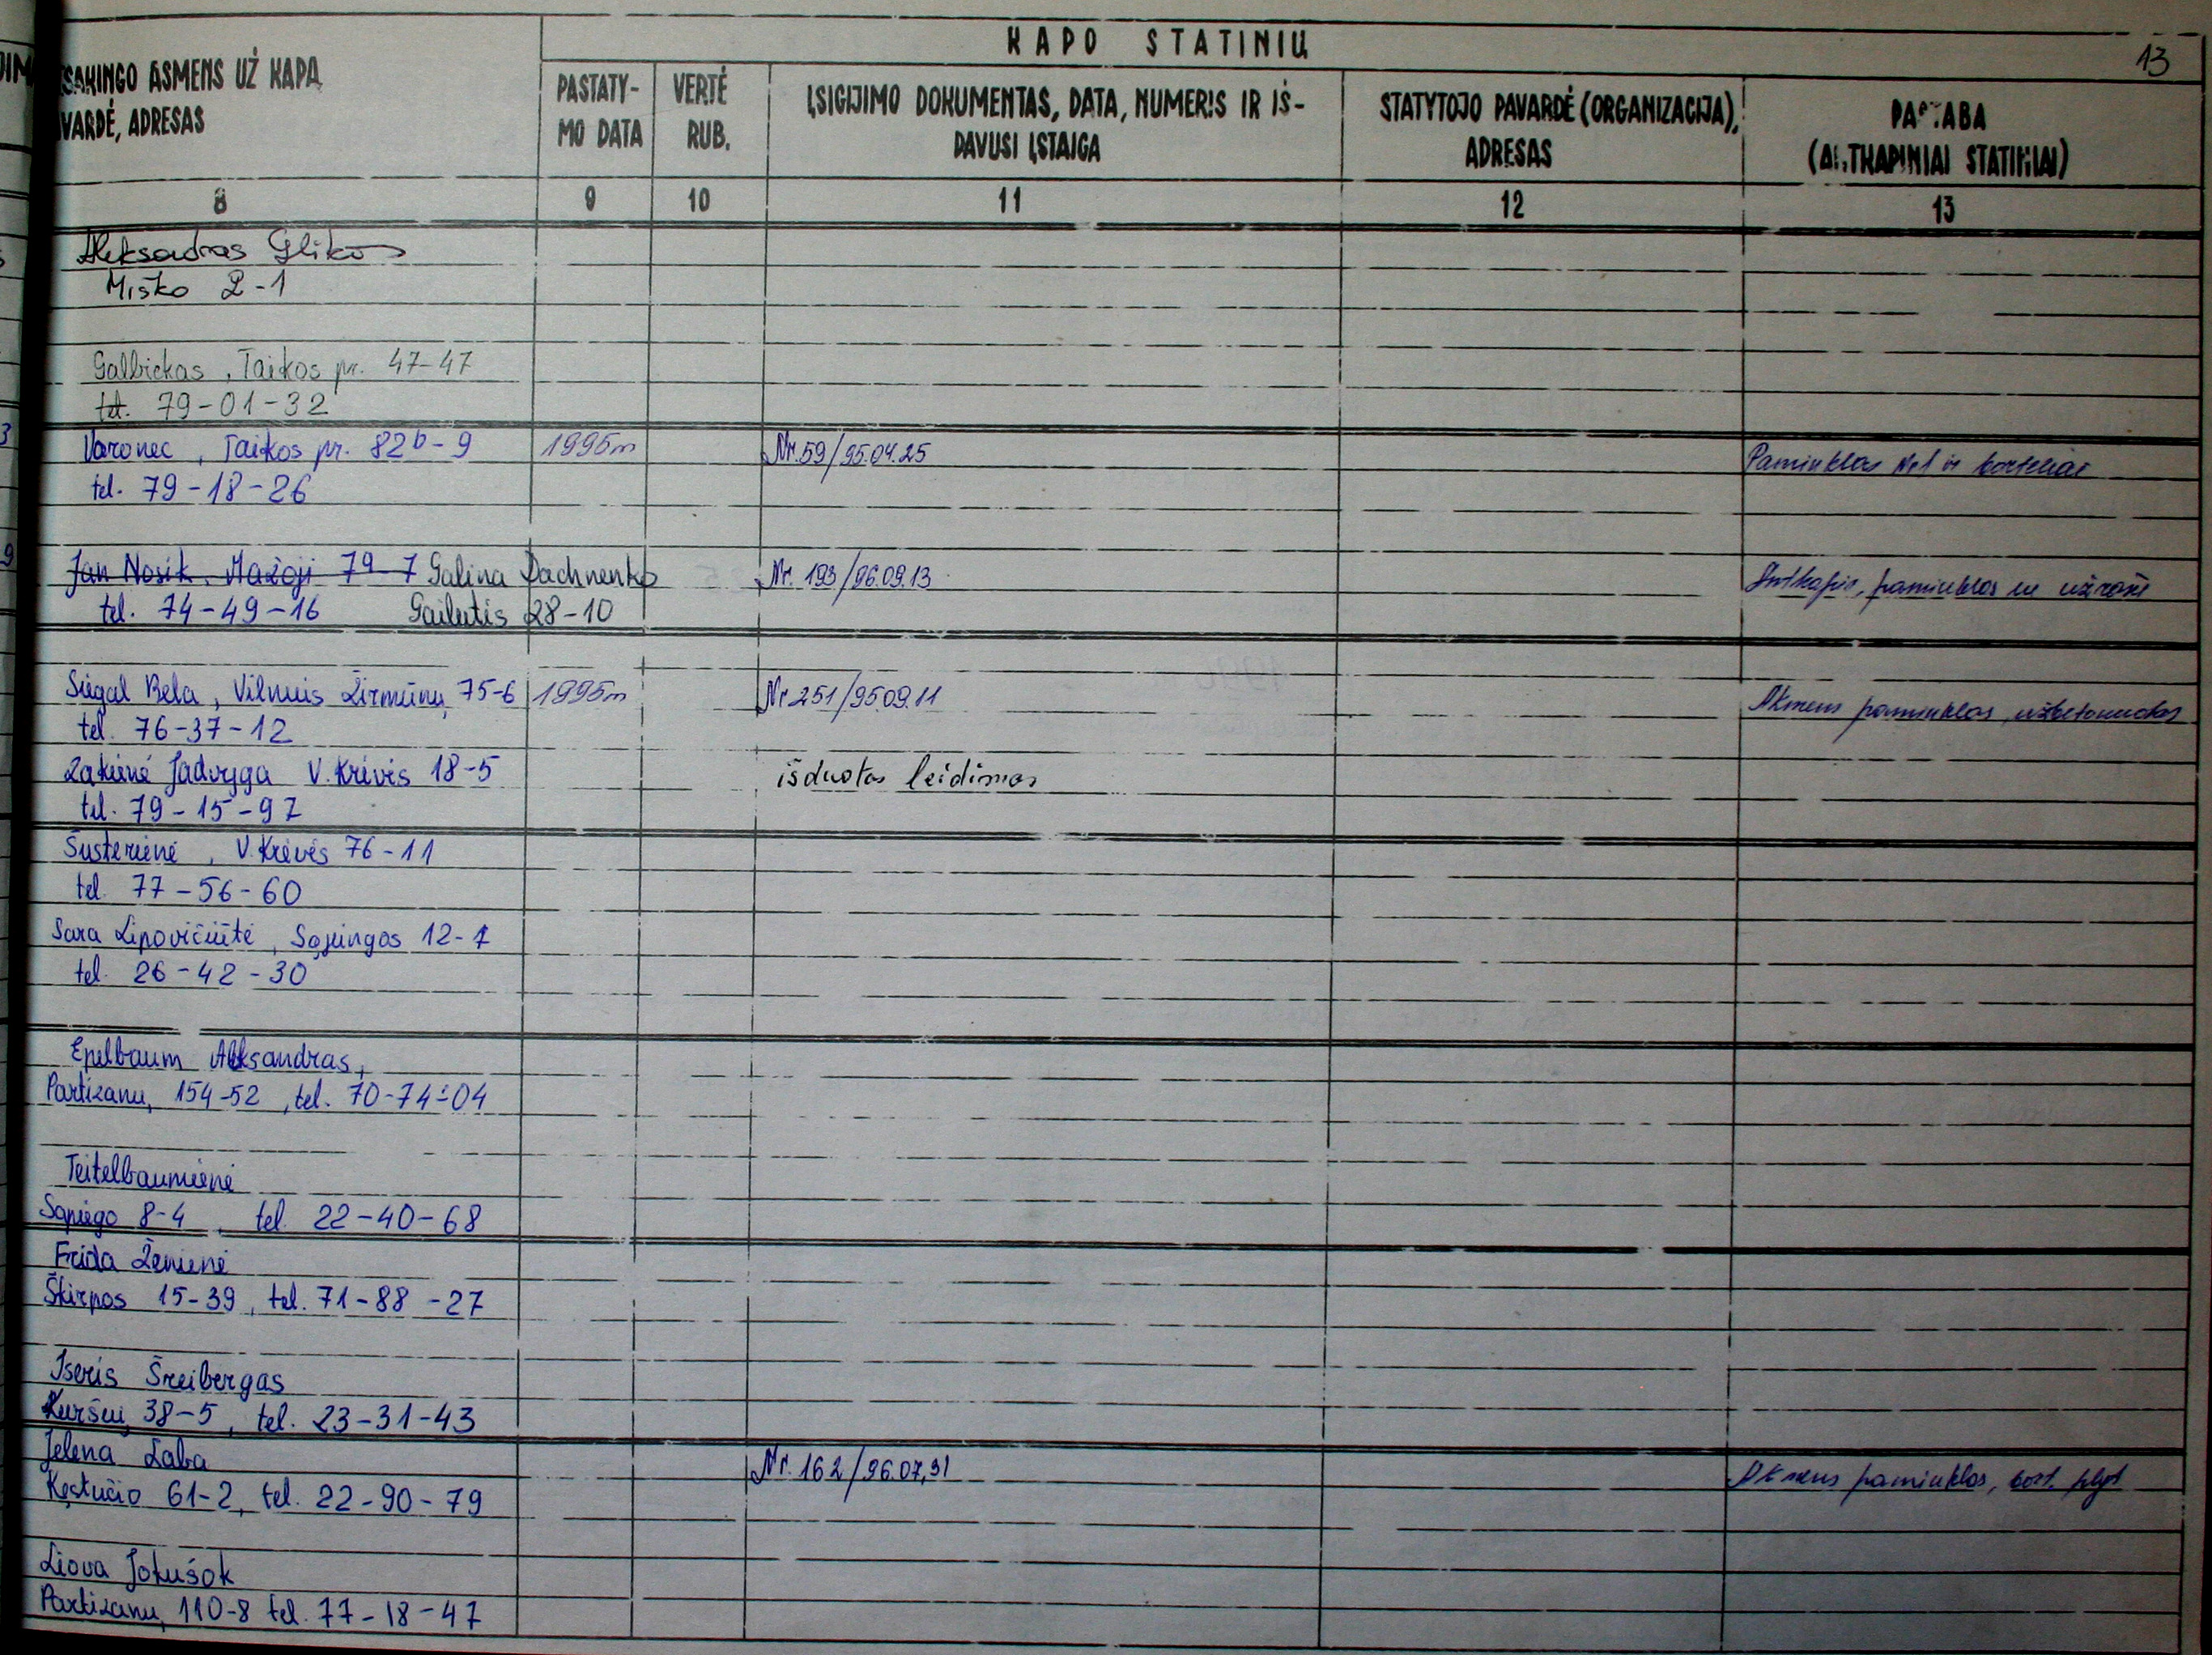 KAPO STATINIŲ
13
SAKINGO ASMENS UŽ KAPĄ
VARDĖ, ADRESAS
PASTATY-
MO DATA
VERTĖ
RUB.
ĮSIGIJIMO DOKUMENTAS, DATA, NUMERIS IR IŠ-
DAVUSI ĮSTAIGA
STATYTOJO PAVARDĖ (ORGANIZACIJA),
ADRESAS
PASTABA
(ANTKAPINIAI STATINIAI)
8 9 10 11 12 13
Aleksandras Glikas
Miško 2-1
Galbickas, Taikos pr. 47-47
tel. 79-01-32
Varonec, Taikos pr. 82b-9 1995m Nr.59/95.04.25 Paminklas Nr1 ir borteliai
tel. 79-18-26
Jan Nosik, Mažoji 79-7 Galina Dachnenko Nr. 193/96.09.13 Antkapis, paminklas su
tel. 74-49-16 Gailutis 28-10
Sigal Bela, Vilnius Žirmūnų 75-6 1995m Nr251/95.09.11 Akmens paminklas, užbetonuotas
tel. 76-37-12
Zakienė Jadvyga V.Krėvės 18-5 išduotas leidimas
tel. 79-15-97
Šusterienė, V.Krėvės 76-11
tel. 77-56-60
Sara Lipovičiūtė, Sąjungos 12-7
tel. 26-42-30
Epelbaum Aleksandras,
Partizanų 154-52, tel. 70-74-04
Teitelbaumienė
Sapiego 8-4, tel. 22-40-68
Frida Ženienė
Škirpos 15-39, tel. 71-88-27
Iseris Šreibergas
Kuršių 38-5, tel. 23-31-43
Jelena Laba Nr. 162/96.07,31 Akmens paminklas, bort. plyt
Kęstučio 61-2, tel. 22-90-79
Liova Jokušok
Partizanų 110-8 tel. 77-18-47